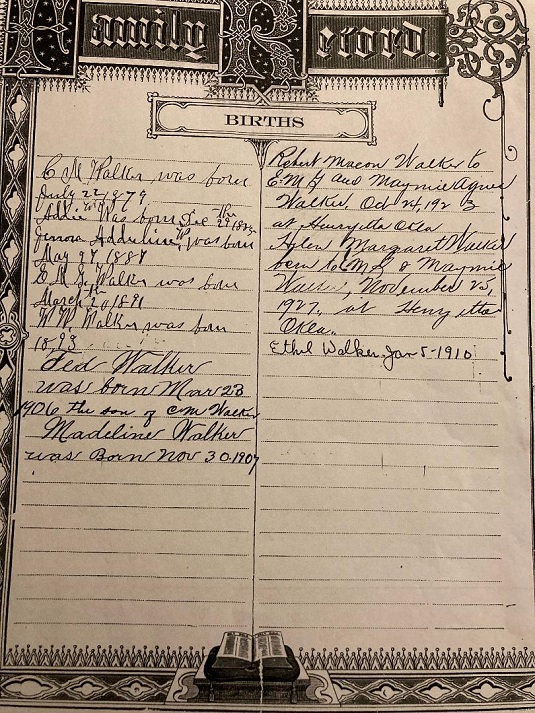 Family Record.
BIRTHS
C M Walker was born
July 22, 1879
Addie was born Dec 29th 1882
Addeline W. was born
May 9th 1887
E M G Walker was born
March 20th 1891
W W. Walker was born
1893
Fed Walker
was born Mar 23
1906 the son of CM Walker
Madeline Walker
was Born Nov 30. 1907
Robert Macon Walker to
E.M G and Maymie Agnes
Walker, Oct 24, 192 3
at Henryetta Okla
Helen Margaret Walker
born to E.M G & Maymie
Walker, November 25,
1927, at Henryetta
Okla.
Ethel Walker. Jan 5-1910